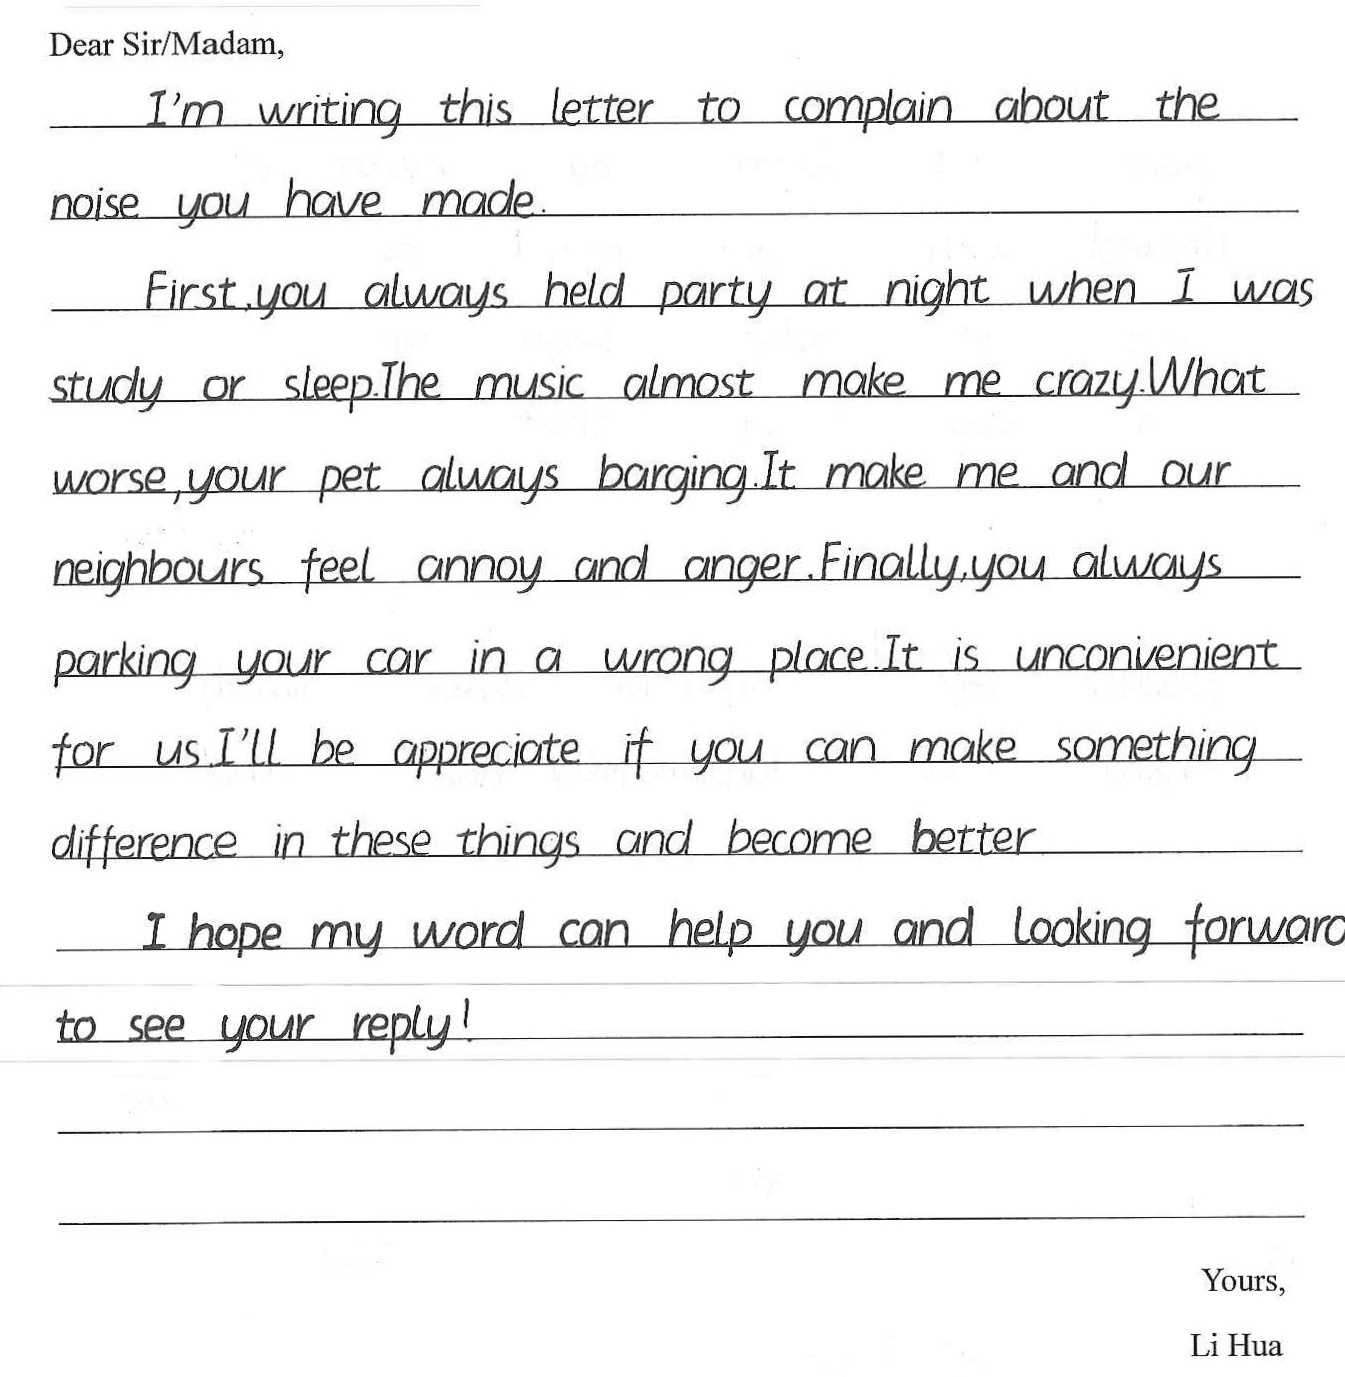 Dear Sir/Madam,
I'm writing this letter to complain about the
noise you have made.
First,you always held party at night when I was
study or sleep.The music almost make me crazy.What
worse,your pet always barging.It make me and our
neighbours feel annoy and anger.Finally,you always
parking your car in a wrong place.It is unconivenient
for us.I'll be appreciate if you can make something
difference in these things and become better
I hope my word can help you and looking forward
to see your reply!
Yours,
Li Hua